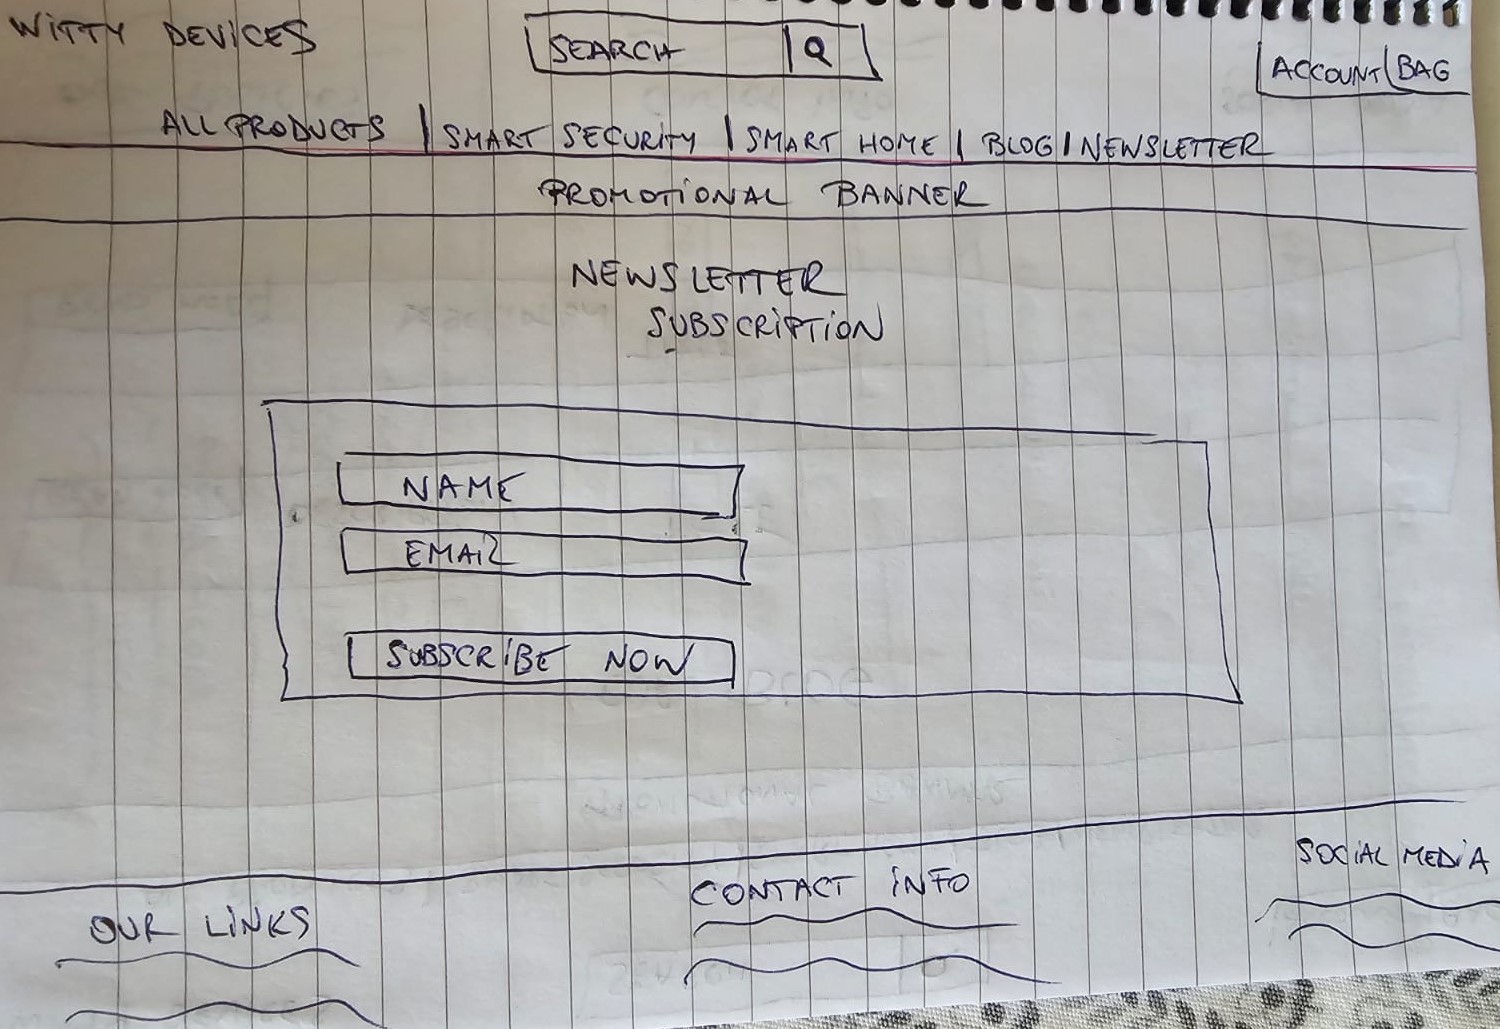 WITTY DEVICES
SEARCH
ACCOUNT BAG
ALL PRODUCTS | SMART SECURITY | SMART HOME | BLOG | NEWSLETTER
PROMOTIONAL BANNER
NEWSLETTER
SUBSCRIPTION
NAME
EMAIL
SUBSCRIBE NOW
OUR LINKS
CONTACT INFO
SOCIAL MEDIA